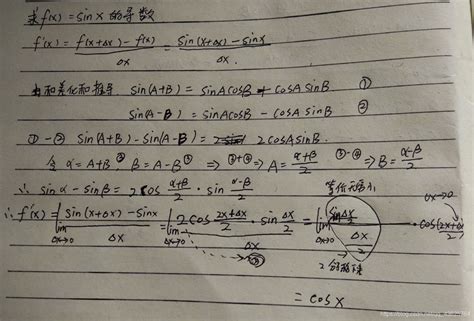 求f(x)=sinx的导数
f'(x) = f(x+Δx)-f(x) / Δx = sin(x+Δx)-sinx / Δx.
由和差化和推导 sin(A+B) = sinAcosB + cosAsinB ①
sin(A-B) = sinAcosB - cosAsinB ②
①-② sin(A+B)-sin(A-B) = 2cosAsinB.
令 α=A+B③, β=A-B④ ⇒ ③+④ ⇒ A = α+β / 2 ③-④ ⇒ B = α-β / 2
∴ sinα - sinβ = 2cos α+β / 2 · sin α-β / 2
等价无穷小
∴ f'(x) = lim Δx→0 sin(x+Δx)-sinx / Δx = lim Δx→0 2cos 2x+Δx / 2 · sin Δx / 2 / Δx = lim Δx→0 sin Δx / 2 / Δx / 2 · cos(2x+Δx / 2
= cosx